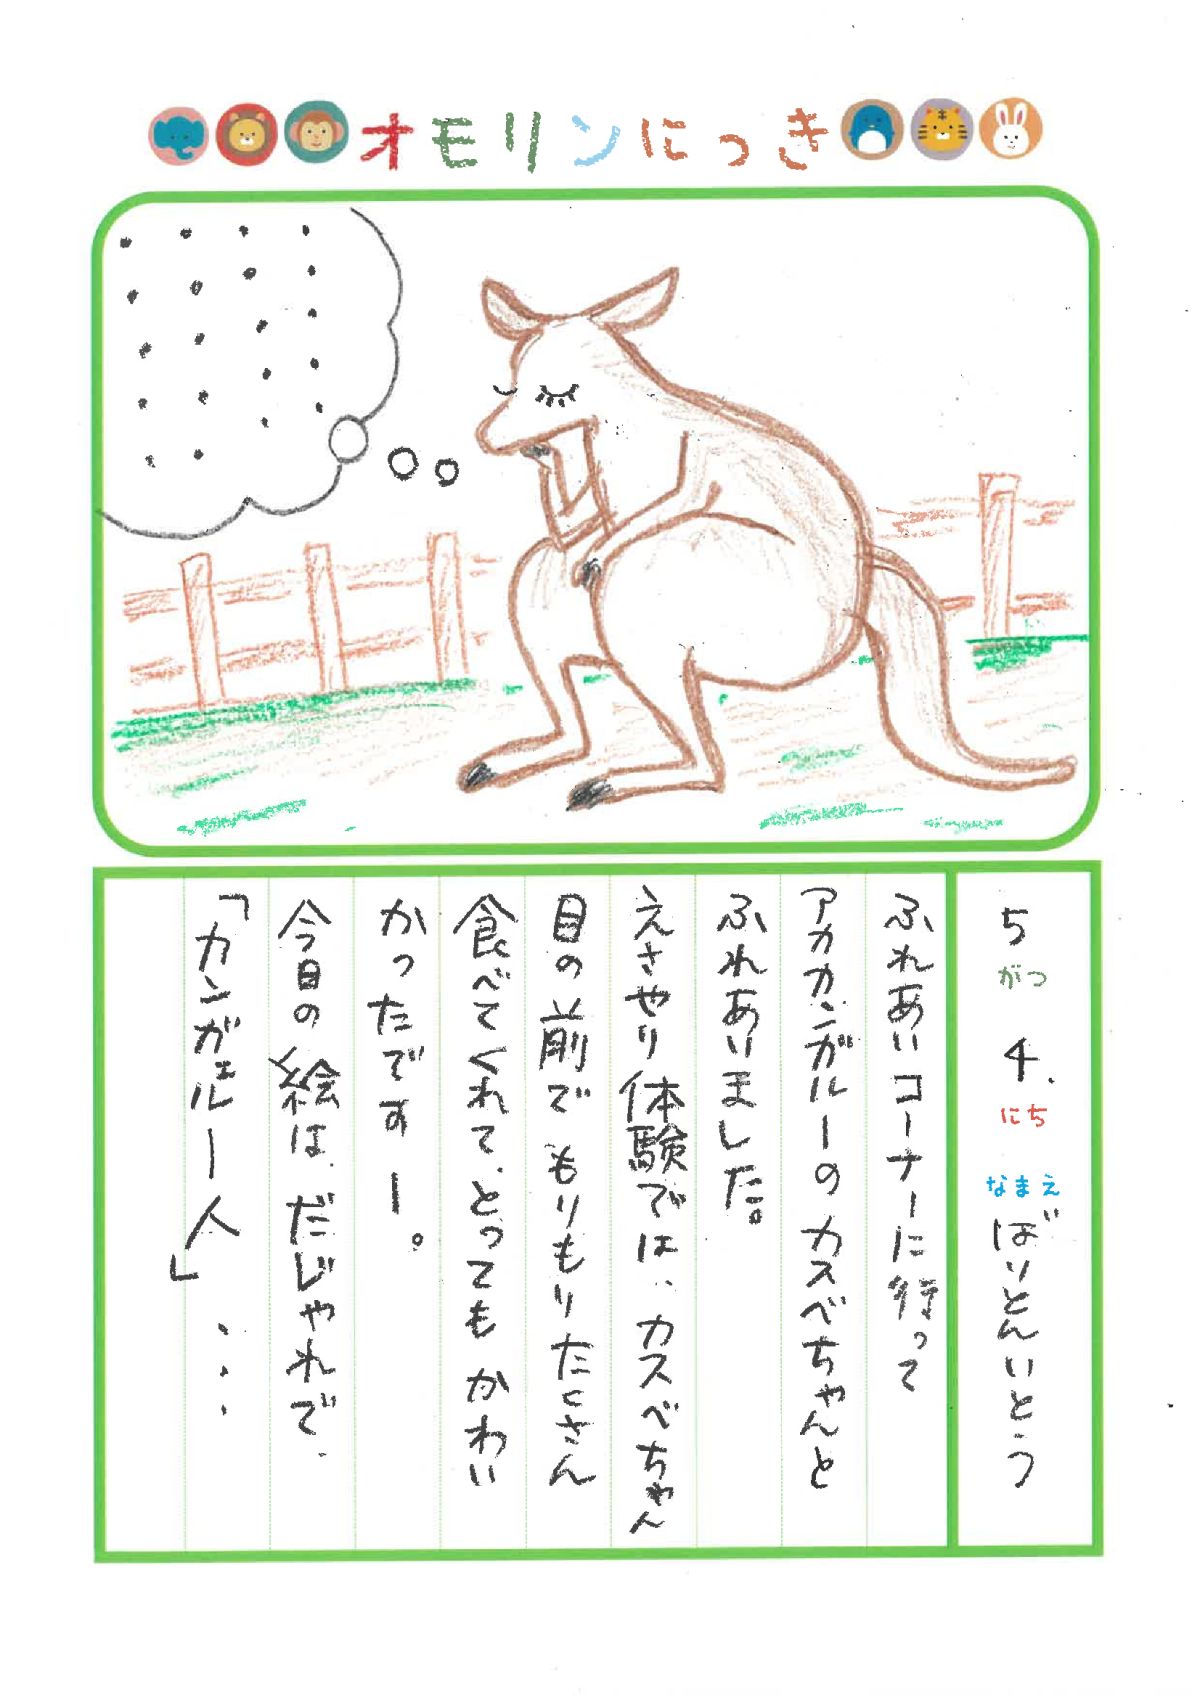 オモリンにっき
5がつ 4.にち なまえ ばりとんいとう
ふれあいコーナーに行って
アカカンガルーの カスべちゃんと
ふれあいました。
えさやり体験では、カスべちゃん
目の前で もりもりたくさん
食べてくれて、とっても かわい
かったですー。
今日の絵は、だじゃれで、
「カンガェルー人」...